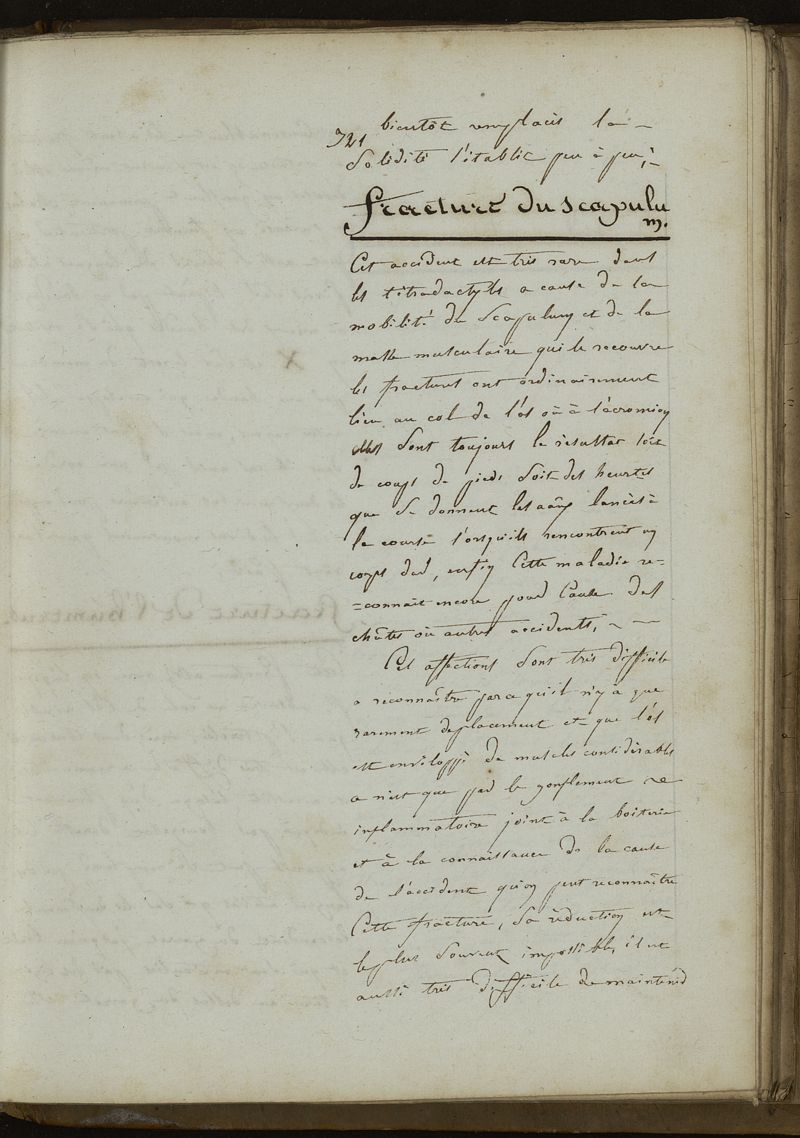 721 bientôt remplacés la
Solidité s'établit peu à peu,
fracture du scapulu
m.
Cet accident est très rare dans
les tétradactyles a cause de la
mobilité du Scapulum et de la
masse musculaire qui le recouvre
les fractures ont ordinairement
lieu au col de l'os où à l'acromion
elles sont toujours le résultat soit
de coups de pieds soit des heurtes
que se donnent les lancés à
la course lorsqu'ils rencontrent un
corps dur, enfin Cette maladie re-
=connait encore pour Cause des
chûtes où autres accidents,
Ces affections sont très difficile
a reconnaître parce qu'il n'y à que
rarement deplacement et que l'os
est enveloppé de muscles considérables
a n'est que par le gonflement
inflammatoire joint à la boiterie
et à la connaissance de la cause
de l'accident qu'on peut reconnaître
Cette fracture, sa réduction est
le plus souvent impossible, il est
aussi très difficile de maintenir